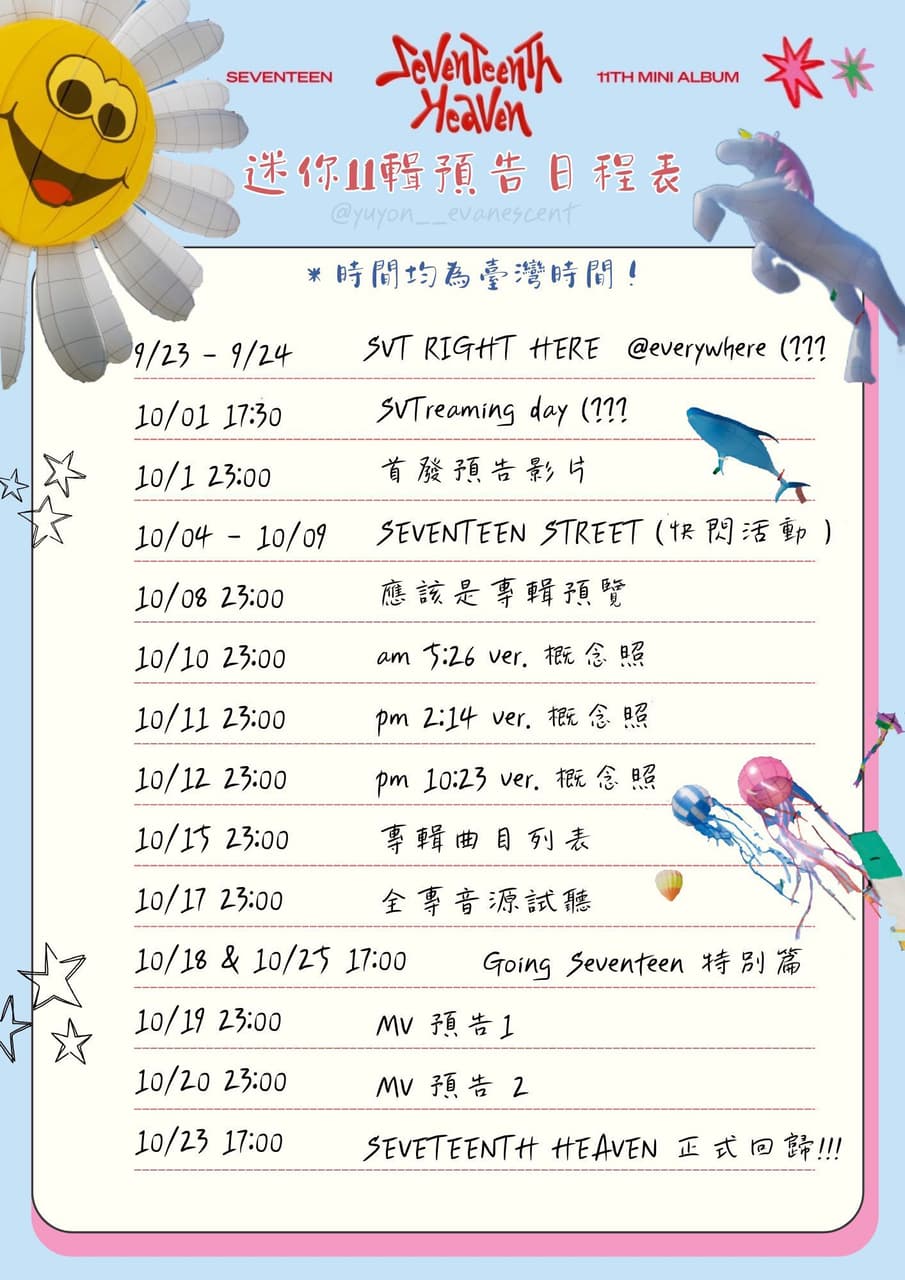 SEVENTEEN
SEVENTEENTH
HEAVEN
11TH MINI ALBUM
迷你11輯預告日程表
@yuyon__evanescent
* 時間均為臺灣時間！
9/23 - 9/24 SVT RIGHT HERE @everywhere (???
10/01 17:30 SVTreaming day (???
10/1 23:00 首發預告影片
10/04 - 10/09 SEVENTEEN STREET (快閃活動 )
10/08 23:00 應該是專輯預覽
10/10 23:00 am 5:26 ver. 概念照
10/11 23:00 pm 2:14 ver. 概念照
10/12 23:00 pm 10:23 ver. 概念照
10/15 23:00 專輯曲目列表
10/17 23:00 全專音源試聽
10/18 & 10/25 17:00 Going Seventeen 特別篇
10/19 23:00 MV 預告1
10/20 23:00 MV 預告 2
10/23 17:00 SEVETEENTH HEAVEN 正式回歸!!!